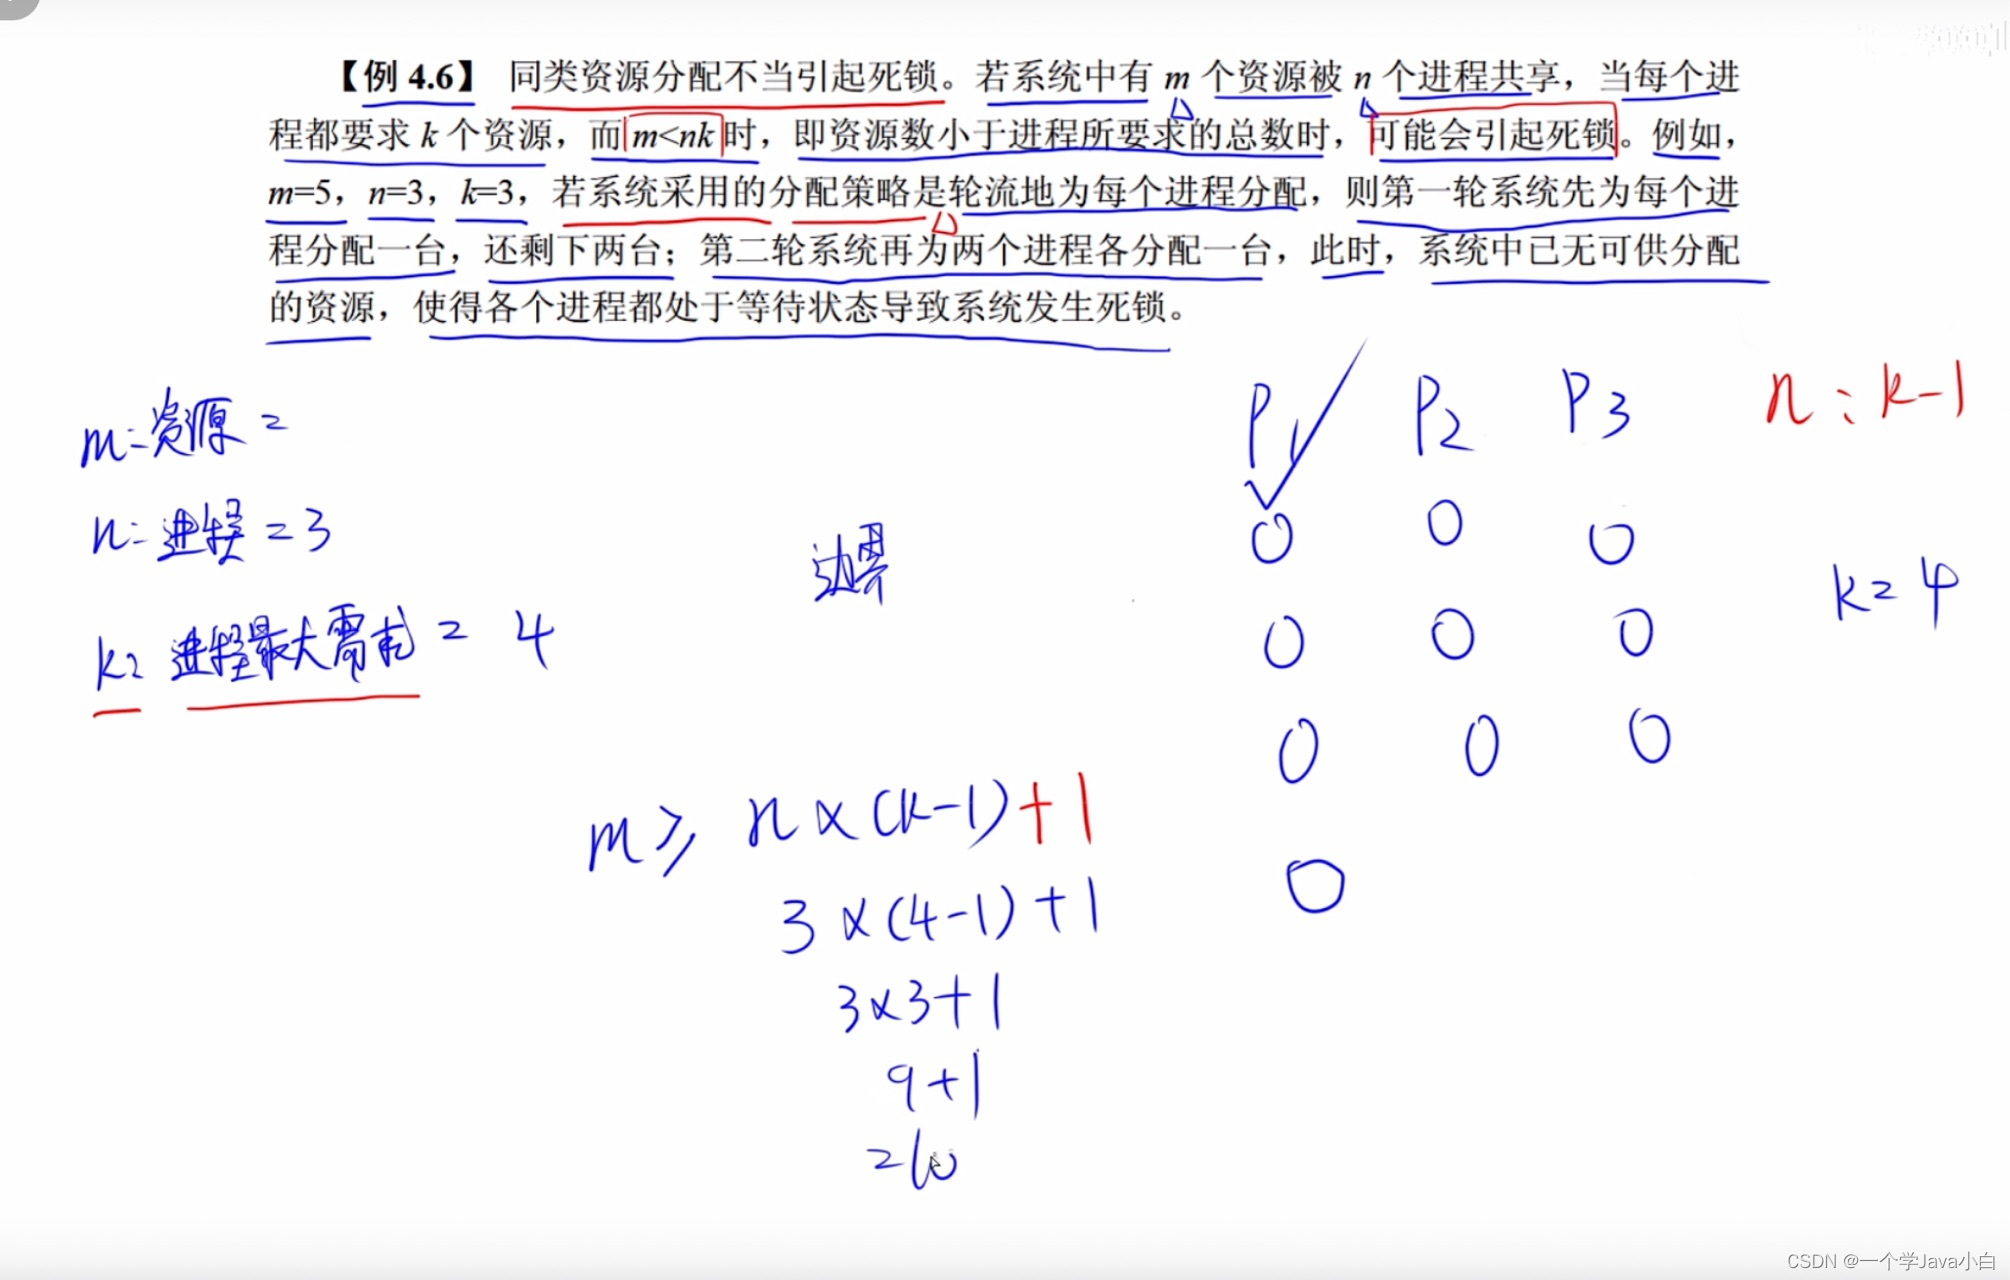 【例 4.6】 同类资源分配不当引起死锁。若系统中有 m 个资源被 n 个进程共享，当每个进
程都要求 k 个资源，而 m<nk 时，即资源数小于进程所要求的总数时，可能会引起死锁。例如，
m=5，n=3，k=3，若系统采用的分配策略是轮流地为每个进程分配，则第一轮系统先为每个进
程分配一台，还剩下两台；第二轮系统再为两个进程各分配一台，此时，系统中已无可供分配
的资源，使得各个进程都处于等待状态导致系统发生死锁。
m=资源=
n=进程=3
k=进程最大需求=4
边界
P1 P2 P3
n：k-1
0 0 0
k=4
0 0 0
0 0 0
0
m≥ n×(k-1)+1
3×(4-1)+1
3×3+1
9+1
=10
CSDN @一个学Java小白